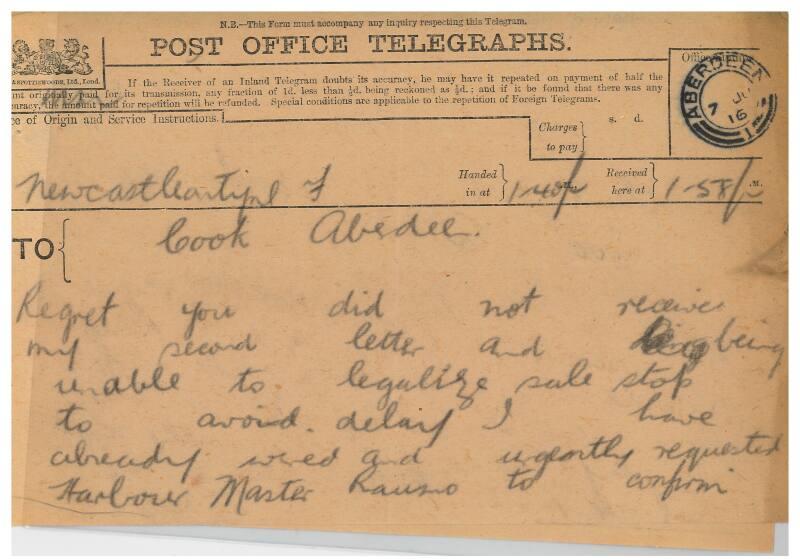 N.B.—This Form must accompany any inquiry respecting this Telegram.
POST OFFICE TELEGRAPHS.
If the Receiver of an Inland Telegram doubts its accuracy, he may have it repeated on payment of half the
nt originally paid for its transmission, any fraction of 1d. less than ½d. being reckoned as ½d.; and if it be found that there was any
curacy, the amount paid for repetition will be refunded. Special conditions are applicable to the repetition of Foreign Telegrams.
ce of Origin and Service Instructions.
Charges to pay
s. d.
ABERDEEN
7 JU
16
Newcastleontyne
Handed in at
1·40
Received here at
1·58
M.
TO
Cook Aberdeen.
Regret you did not receive
my second letter and being
unable to legalize sale stop
to avoid delay I have
already wired and urgently requested
Harbour Master Raumo to confirm